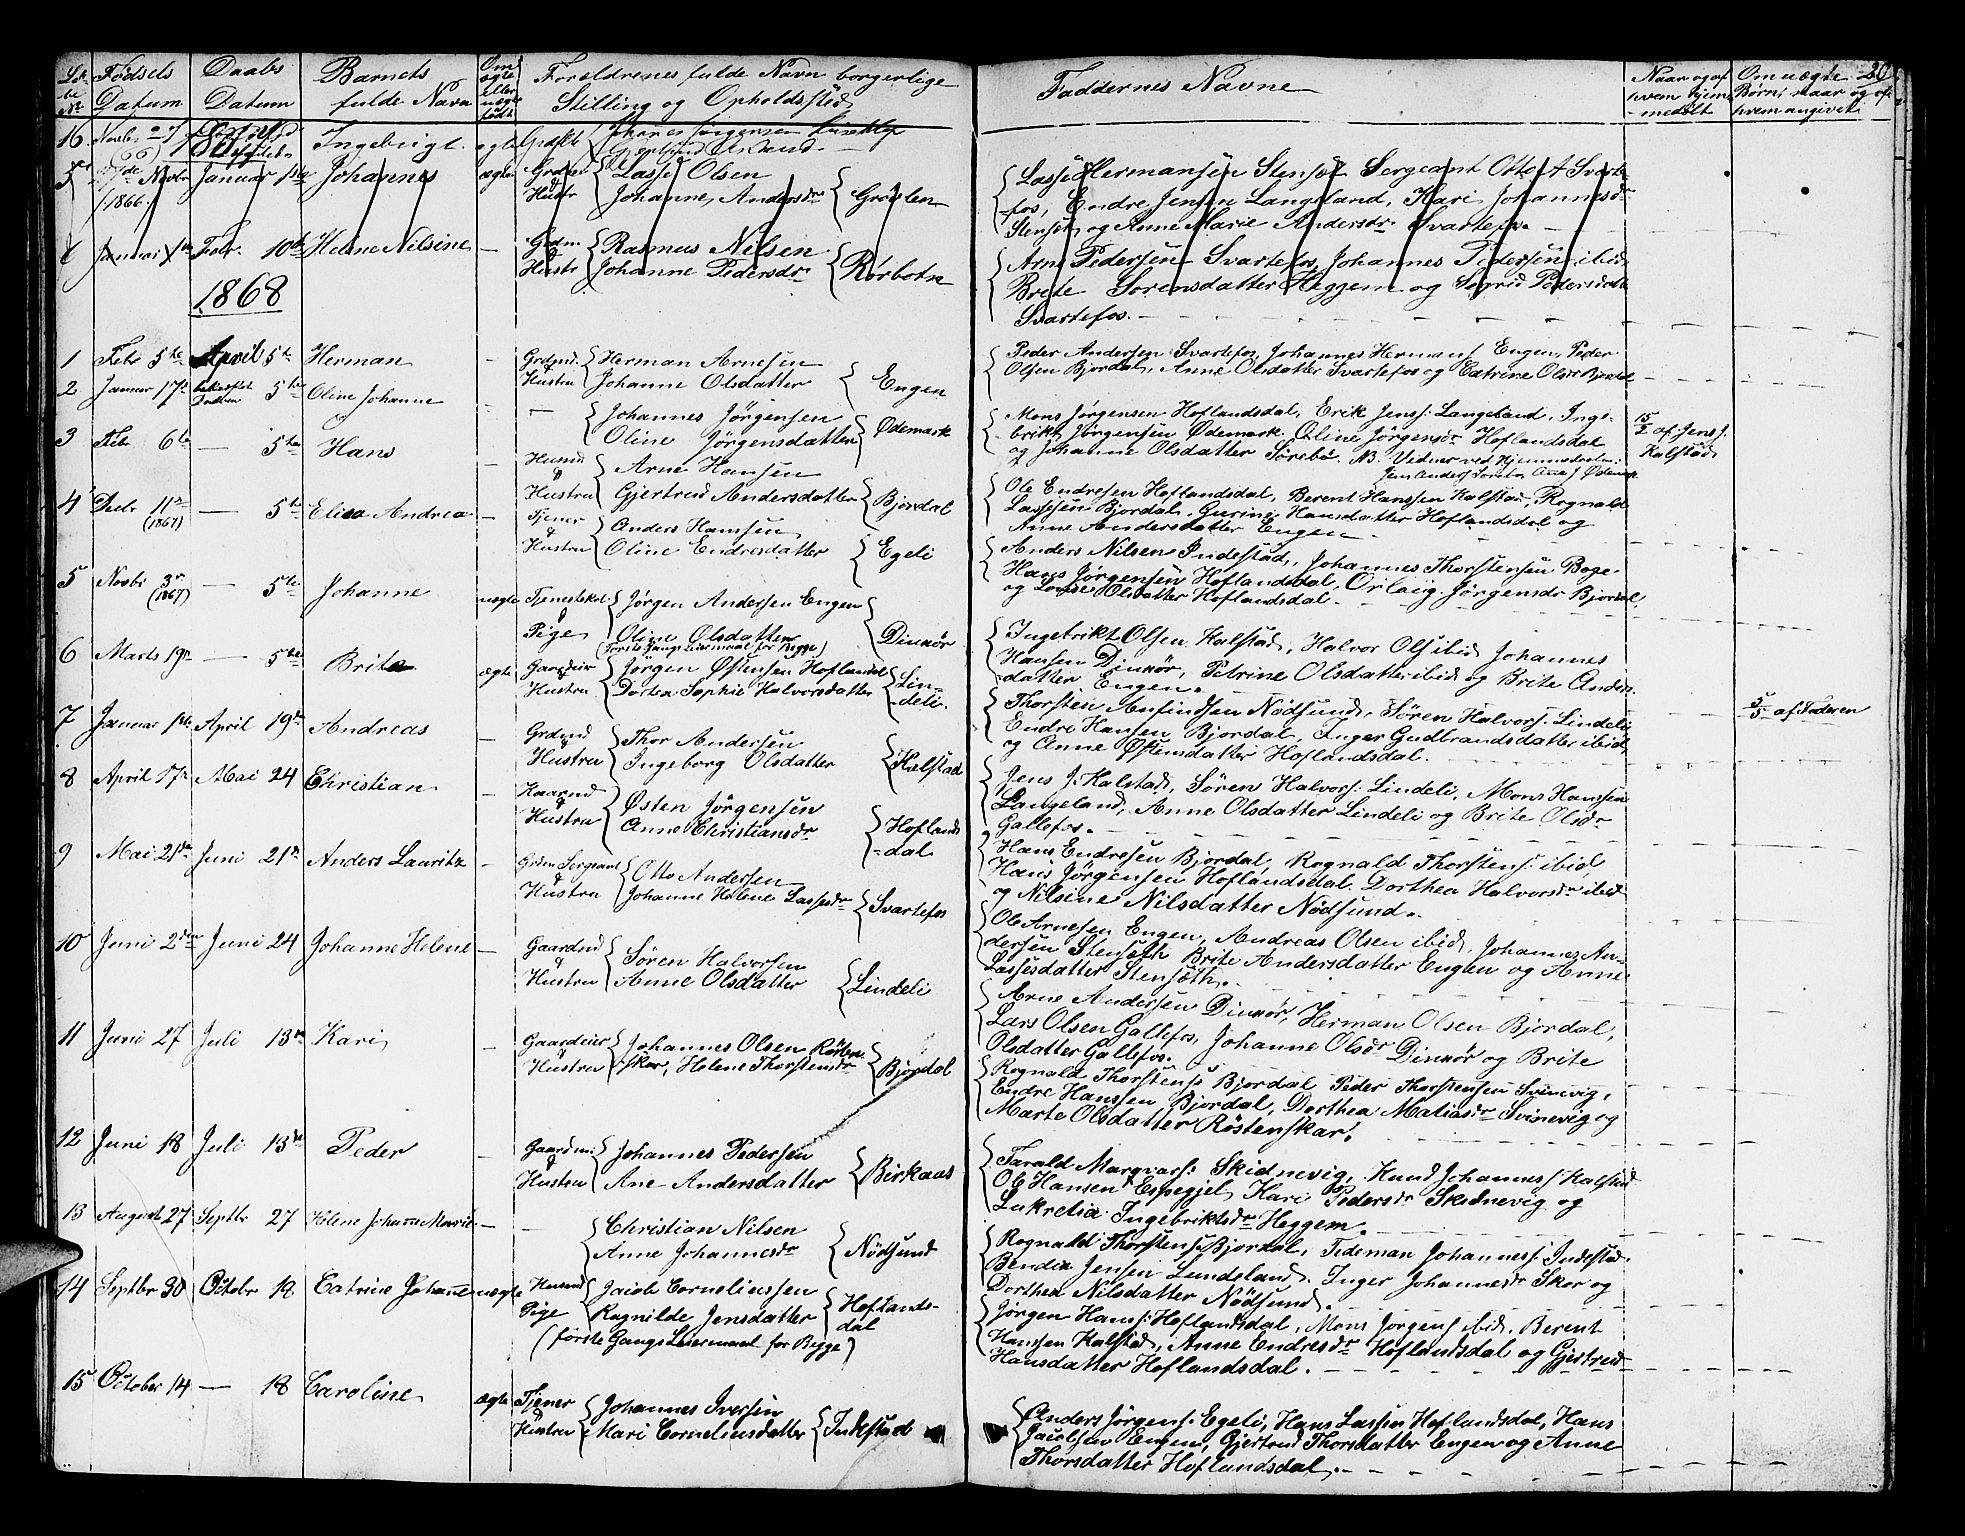 Lø-
be
No
Fødsels
Datum
Daabs
Datum
Barnets
fulde Navn
Om
ægte
eller
uægte
født
Forældrenes fulde Navn borgerlige
Stilling og Opholdssted
Faddernes Navne
Naar og af
hvem hjem-
medøbt
Om uægte
Børn; naar og af
hvem angivet
20
16 Novbr 27 Ingebrigt ægte
5 27de Novbr Januar 1ste Johannes ægte Grdbr Lasse Olsen
(1866) Hustr Johanne Andersdr
Lasse Hermansen Stensæt Sergeant Otto A Svarte-
fos, Endre Jensen Langeland, Kari Johannesdr
Stensæt, og Anne Marie Andersdr Svartefos.
6 Januar 1ste Febr. 10de Helene Nilsine — Grdm. Rasmus Nilsen
Hustr Johanne Pedersdr Rørbotn
Arne Pedersen Svartefos, Johannes Pedersen ibid
Brite Sørensdatter Heggem og Sigrid Pedersdatter
Svartefos.
1868
1 Febr 5te April 5te Herman — Grdmd. Herman Arnesen
& Hustru Johanne Olsdatter Engen
Peder Andersen Svartefos, Johannes Hermans. Engen, Peder
Olsen Bjordal, Anne Olsdatter Svartefos og Catrine Olsdr Bjordal
2 Januar 17de 5te Oline Johanne — — Johannes Jörgensen
Oline Jörgensdatter Ødemark
Mons Jörgensen Hoflandsdal, Erik Jenss. Langeland, Inge-
brikt Jørgensen Ødemark. Oline Jørgensdr Hoflandsdal
og Johanne Olsdatter Sørebø. NB. Vidner ved Hjemmedaaben:
15/2 af Jens J.
Kalstad
3 Feb 6te — 5te Hans — Husmd
& Hustru Arne Hansen
Gjertrud Andersdatter Bjordal
Ole Endresen Hoflandsdal, Berent Hanssen Kalstad, Rognald
Lassesen Bjordal, Gurine Hansdatter Hoflandsdal og
Anne Andersdatter Engen
4 Febr 11te (1867) — 5te Elisa Andrea — Tjener
& Hustru Anders Hanssen
Oline Endresdatter Egeli
Anders Nilsen Indestad, Johannes Thorstensen Boge
Hans Jørgensen Hoflandsdal, Orlaug Jørgensdr Bjordal,
og Lovise Olsdatter Hoflandsdal
5 Novbr 3de (1867) — 5te Johanne uægte Tjenestekarl
& Pige Jørgen Andersen Engen
Oline Olsdatter
(første Gangs Leiermaal for Begge) Dinmör
Ingebrikt Olsen Kalstad, Halvor Ols. ibid Johannes
Hansen Dinmör, Petrine Olsdatter ibid og Brite Anders-
datter Engen.
6 Marts 19de — 5te Brite ægte Gaardeier
& Hustru Jørgen Østensen Hoflandsdal
Dortea Sophie Halvorsdatter Lin-
deli.
Thorsten Anfindsen Nødsund, Søren Halvors. Lindeli,
Endre Hansen Bjordal, Inger Gudbrandsdatter ibid,
og Anne Østensdatter Hoflandsdal.
5/5 af Faderen
7 Januar 1ste April 19de Andreas — Grdmd
& Hustru Thor Andersen
Ingeborg Olsdatter Kalstad
Jens J. Kalstad, Søren Halvors. Lindeli, Mons Hanssen
Langeland, Anne Olsdatter Lindeli og Brite Olsdr
Gallefos.
8 April 17de Mai 24 Christian — Kaarmd
& Hustru Østen Jörgensen
Anne Christiansdr Hoflands-
dal
Hans Endresen Bjordal, Rognald Thorstens. ibid,
Hans Jørgensen Hoflandsdal. Dorthea Halvorsdr ibid
og Nilsine Nilsdatter Nødsund.
9 Mai 21de Juni 21de Anders Lauritz — Grdm Sergeant
& Hustru Otto Andersen
Johanne Helene Lassesdr Svartefos
Ole Arnesen Engen, Andreas Olsen ibid, Johannes An-
dersen Stensæth Brite Andersdatter Engen og Anne
Lassesdatter Stensæth.
10 Juni 2den Juni 24 Johanne Helene — Gaardmd
& Hustru Søren Halvorsen
Anne Olsdatter Lindeli
Arne Andersen Dinmör, Herman Olsen Bjordal,
Lars Olsen Gallefos, Johanne Olsdr Dinmör og Brite
Olsdatter Gallefos.
11 Juni 27 Juli 13de Kari — Gaardeier
& Hustru Johannes Olsen Røsten-
skar, Helene Thorstensdr Bjordal
Rognald Thorstens. Bjordal Peder Thorstensen Svinevig,
Endre Hanssen Bjordal, Dorthea Matiasdr Svinevig og
Marte Olsdatter Röstenskar.
12 Juni 18 Juli 13de Peder — Gaardmd
& Hustru Johannes Pedersen
Ane Andersdatter Birkaas
Tarald Marqvars. Skidnevig, Knud Johannes. Kalstad
Ole Hansen Espegjel, Kari Pedersdr Skidnevig og
Lukretia Ingebriktsdr Heggem.
13 August 27 Septbr 27 Helene Johanne Marie — — Christian Nilsen
Anne Johannesdr Nödsund
Rognald Thorstens. Bjordal, Tideman Johanness. Indestad
Bendix Jensen Lundeland, Inger Johannesdr Skor og
Dorthea Nilsdatter Nødsund.
14 Septbr 30 October 18 Catrine Johanne uægte Husmd
Pige Jacob Corneliussen
Ragnilde Jensdatter Hoflands-
dal
(første Gangs Leiermaal for Begge)
Jørgen Hans. Hoflandsdal, Mons Jørgens. ibid, Berent
Hanssen Kalstad, Anne Endresdr Hoflandsdal og Gjertrud
Hansdatter Hoflandsdal.
15 October 14 — 18 Caroline ægte Tjener
& Hustru Johannes Iversen
Mari Corneliusdatter Indestad
Anders Jörgens. Egeli, Hans Lassen Hoflandsdal, Hans
Jacobsen Engen, Gjertrud Thorsdatter Engen og Anne
Thorsdatter Hoflandsdal.